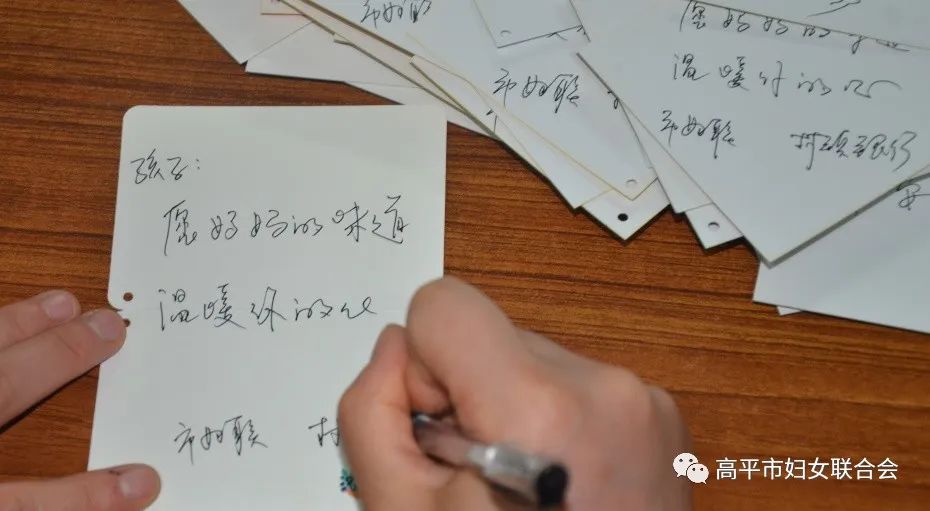 孩子：
愿妈妈的味道
温暖你的心
市妇联 村
市妇联
市妇联
愿妈妈的味
温暖你的心
市妇联 村镇银行
高平市妇女联合会